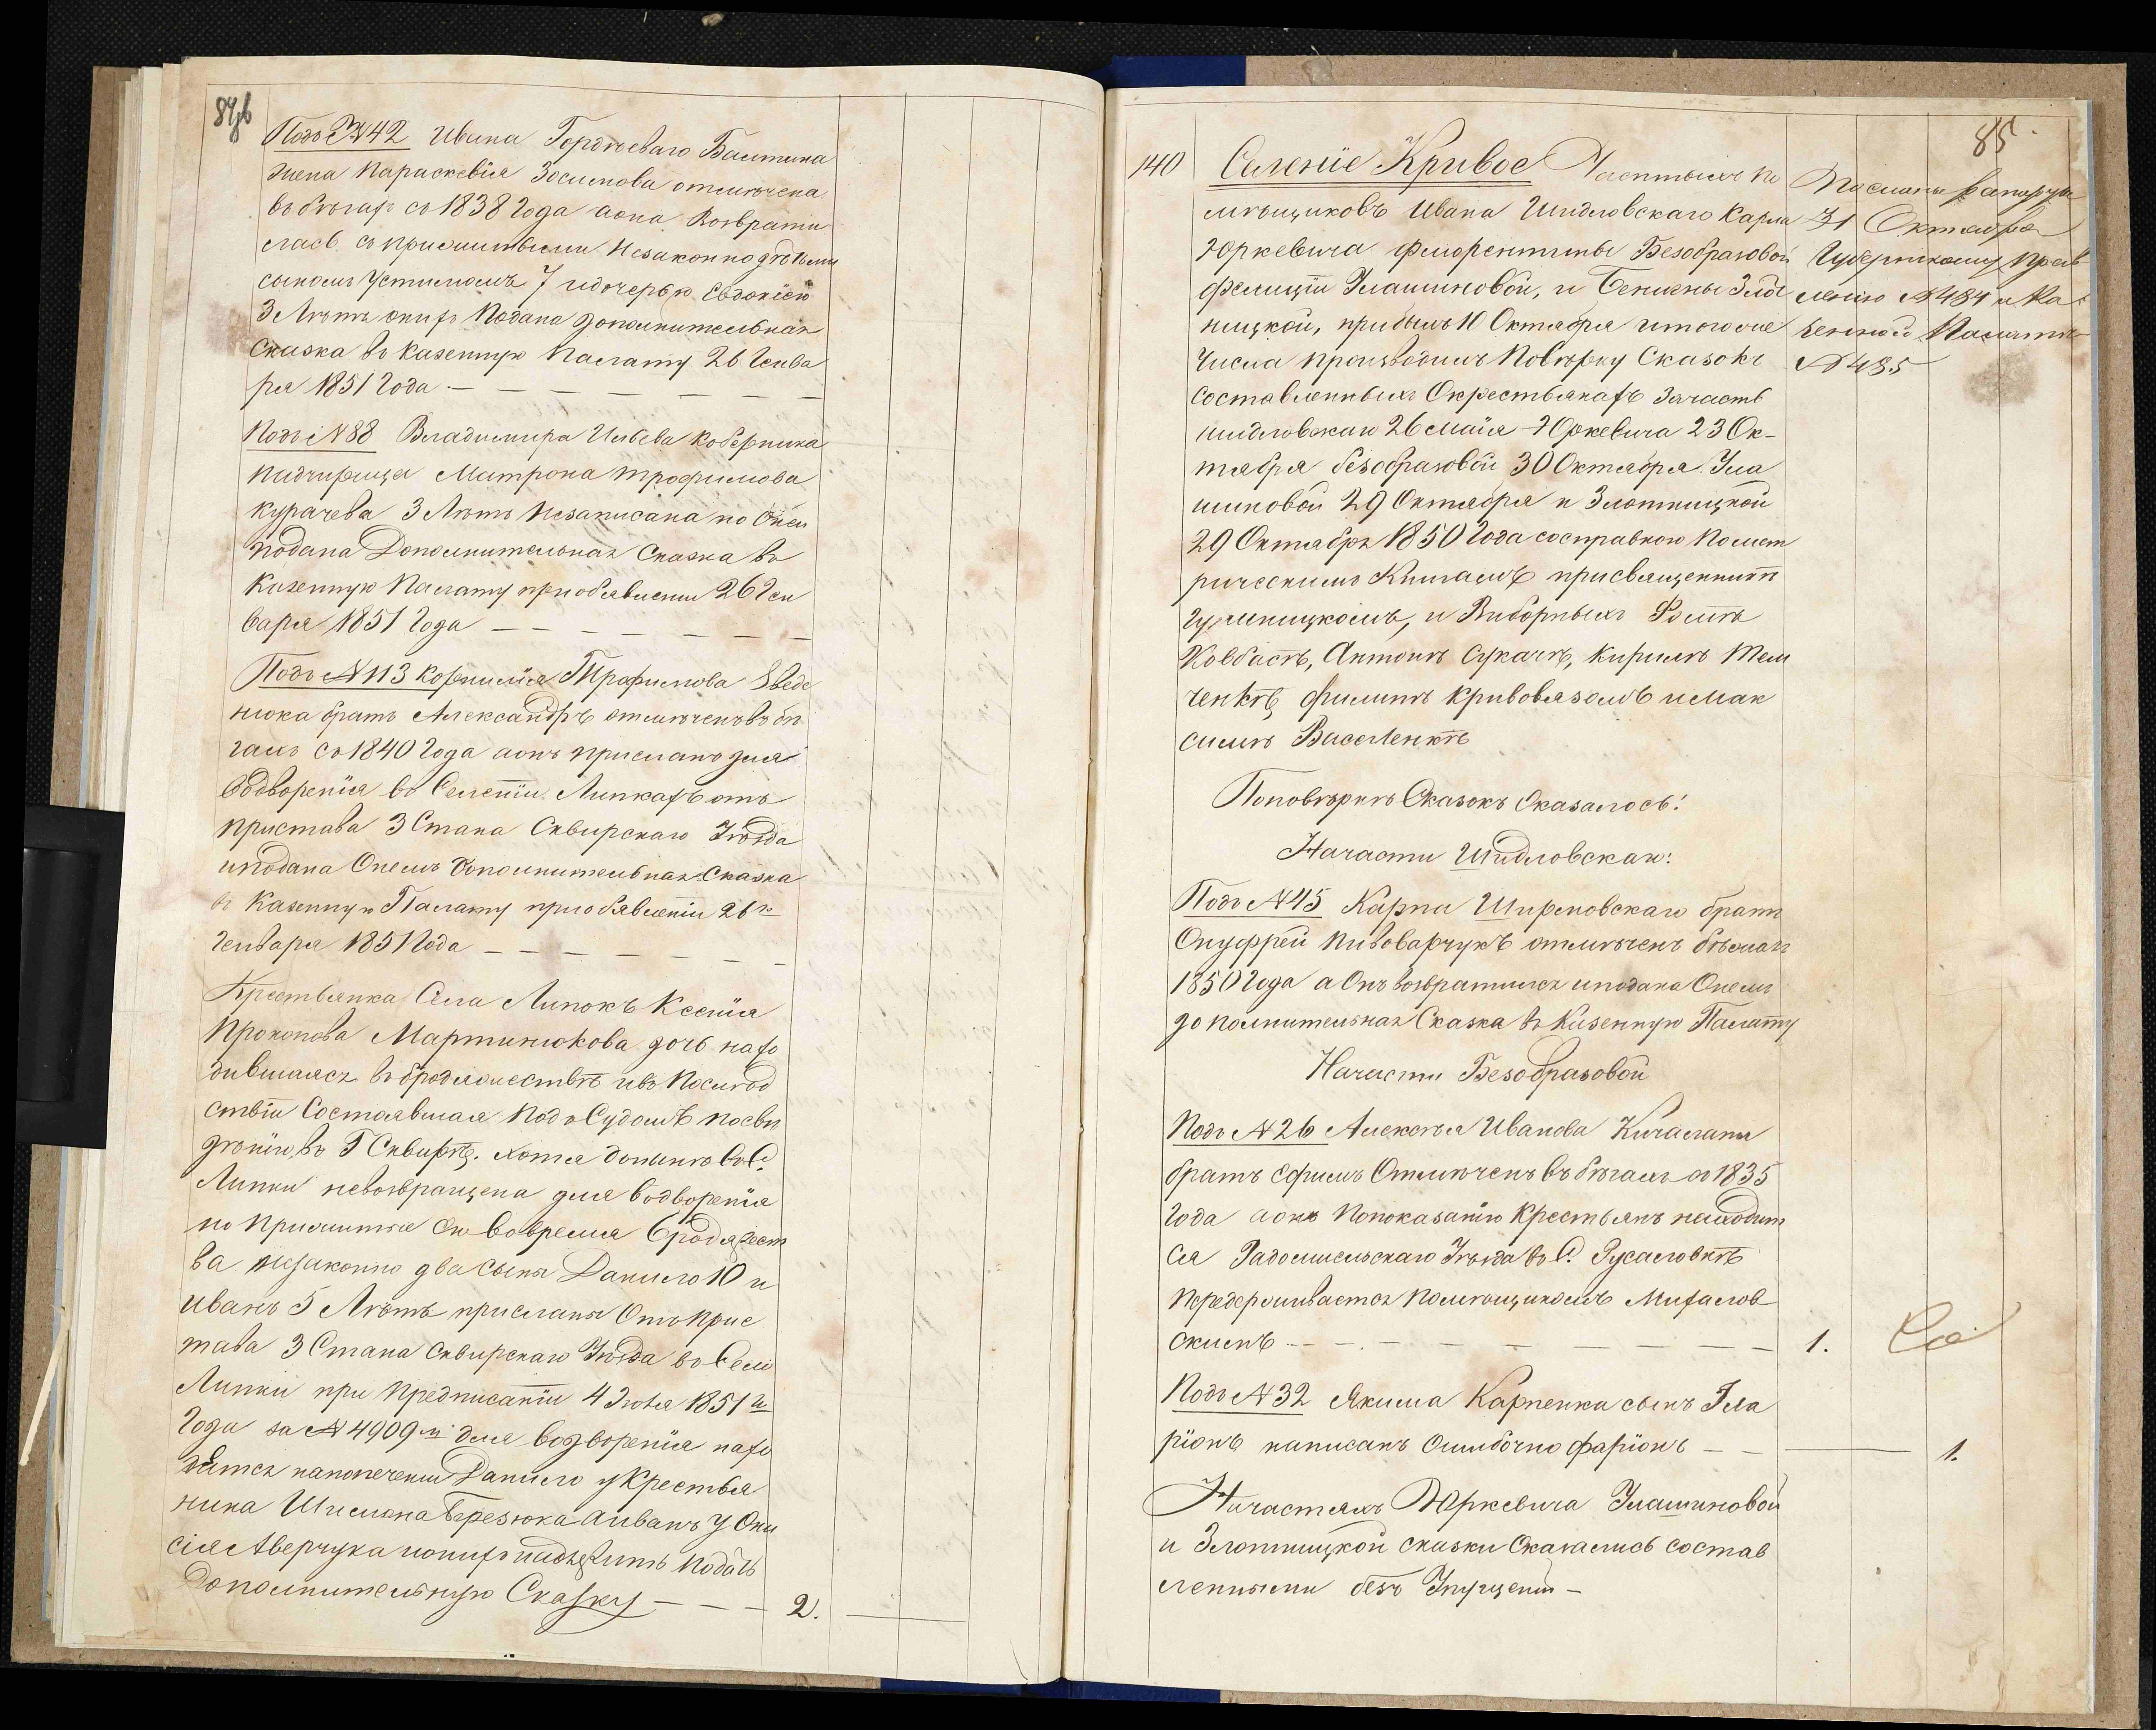 Подъ №42 Ивана Гордѣеваго Баштика
жена Параскевія Зосимова отмѣчена
въ бѣгахъ съ 1838 Года аона Возврати
лась съ прижитыми Незаконно дѣтьми
сыномъ Устимомъ 7 идочерью Евдокіею
3 Лѣтъ онихъ Подана дополнительная
Сказка въ Казенную Палату 26 Генва
ря 1851 Года
Подъ №88 Владимира Ильева Коберника
падчирица Матрона трофимова
Курачева 3 Лѣтъ Незаписана но Оней
подана Дополнительная Сказка въ
Казенную Палату приобявленіи 26 Ген
варя 1851 Года
Подъ №113 Корнилія Трофимова
нюка братъ Александръ отмѣченъ въ бѣ
гахъ со 1840 Года аонъ присланъ для
Водворенія во Селеніи Липкахъ отъ
пристава 3 Стана Сквирскаго Уѣзда
иподана Онемъ Дополнительная Сказка
въ Казенную Палату приобявленіи 26го
Генваря 1851 Года
Крестьянка Села Липокъ Ксенія
Прокопова Мартинюкова дочь нахо
дившаясь въ бродяжествѣ ивъ Послѣд
ствіи Состоявшая Подъ Судомъ
въ Г Сквирѣ. хотя донынѣ во С.
Липки невозвращена для водворенія
но Прижитые Ею вовремя Бродяжест
ва незаконно два сына Данило 10 и
иванъ 5 Лѣтъ присланы Отъ Прис
тава 3 Стана Сквирскаго Уѣзда во Село
Липки при Предписаніи 4 1851го
Года за №4909м для водворенія нахо
дятся напопеченіи Данило уКрестья
нина Березюка аиванъ У
Аверчука ионихъ надлежитъ Подать
Дополнительную Сказку 2.
85
140 Селеніе Кривое Частныхъ По
мѣщиковъ Ивана Шидловскаго Карла
Юркевича Флорентины Безобразовой
Фелиціи Улашиновой, и Бенигны Злот
ницкой, прибылъ 10 Октября итогоже
Числа производилъ Повѣрку Сказокъ
Составленныхъ Окрестьянахъ Зачасть
Шидловскаго 26 Маія Юркевича 23 Ок-
тября безобразовой 30 Октября Ула
шиновой 29 Октября и Злотницкой
29 Октября 1850 Года сосправкою Помет
рическимъ Книгамъ присвященникѣ
и Виборныхъ Фомѣ
Ковбасѣ, Антонѣ Сукачѣ, Кирилѣ Тем
ченкѣ, Филипѣ Кривовязомъ иМак
симѣ Василенкѣ
Посланы рапорты
31 Октября
Губернскому Прав
ленію №484 и Ка
зенной Палатѣ
№485
Поповѣркѣ Сказокъ Оказалось:
Начасти Шидловскаго:
Подъ №45 Карпа братъ
Онуфрей Пивоварчукъ отмѣченъ бѣжалъ
1850 Года а Онъ возвратился иподана Онемъ
дополнительная Сказка въ Казенную Палату
Начасти Безобразовой
Подъ №26 Алексѣя Иванова
братъ Ефимъ Отмѣченъ въ бѣгахъ со 1835
Года аонъ Попоказанію Крестьянъ находит
ся Радомисльскаго Уѣзда во С. Русаловкѣ
Передерживается Помѣщикомъ Михалов
скимъ 1.
Подъ №32 Якима Карпенка сынъ Ила
ріонъ написанъ Ошибочно фаріонъ 1.
Начастяхъ Юркевича Улашиновой
и Злотницкой сказки Оказались состав
ленными безъ Упущеній